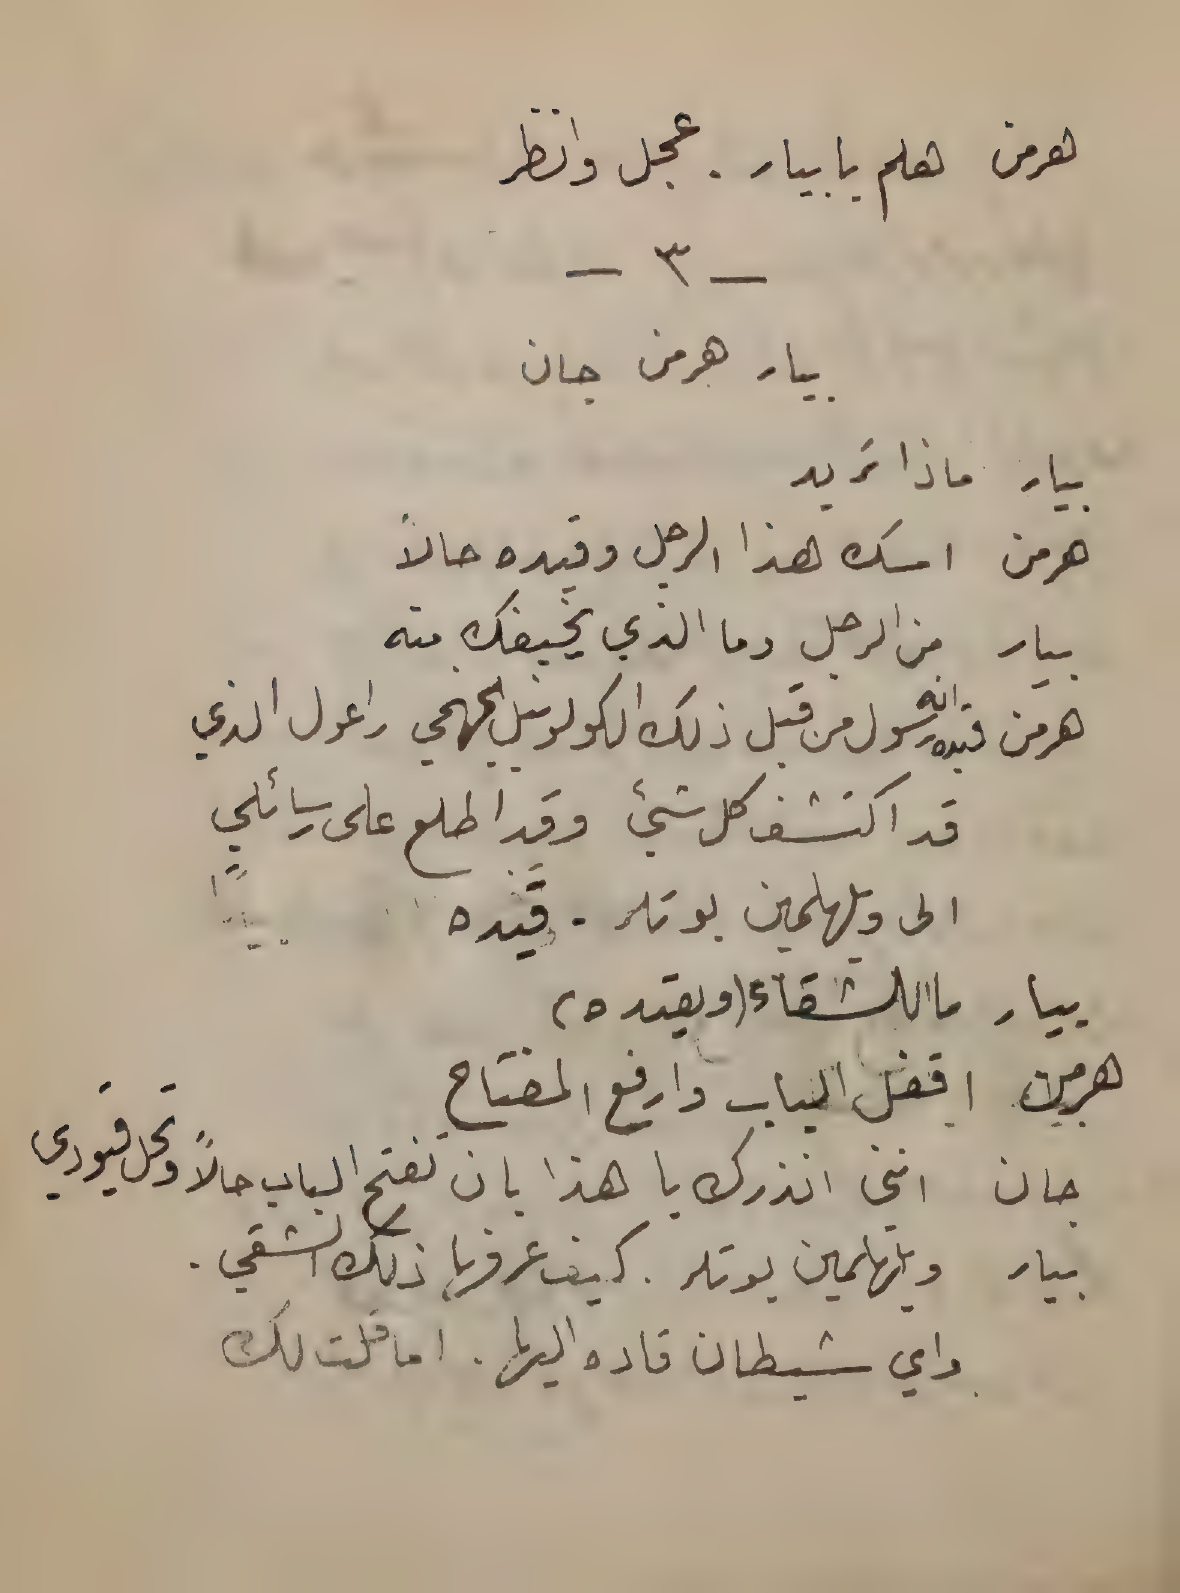 هرمن هلم يا بيار . عجل وانظر
— ٣ —
بيار هرمن جان
بيار ماذا تريد
هرمن امسك هذا الرجل وقيده حالاً
بيار من الرجل وما الذي يخيفك منه
هرمن قيده انه رسول من قبل ذلك الكولونيل الجهنمي راعول الذي
قد اكتشف كل شئ وقد اطلع على رسائلي
الى ويلهلمين بوتلر . قيده
بيار ما للشقاء (ويقيده)
هرمن اقفل الباب وارفع المفتاح
جان انني انذرك يا هذا بان تفتح الباب حالاً وتحل قيودي
بيار ويلهلمين بوتلر . كيف عرفها ذلك الشقي .
واي شيطان قاده اليها . اما قلت لك